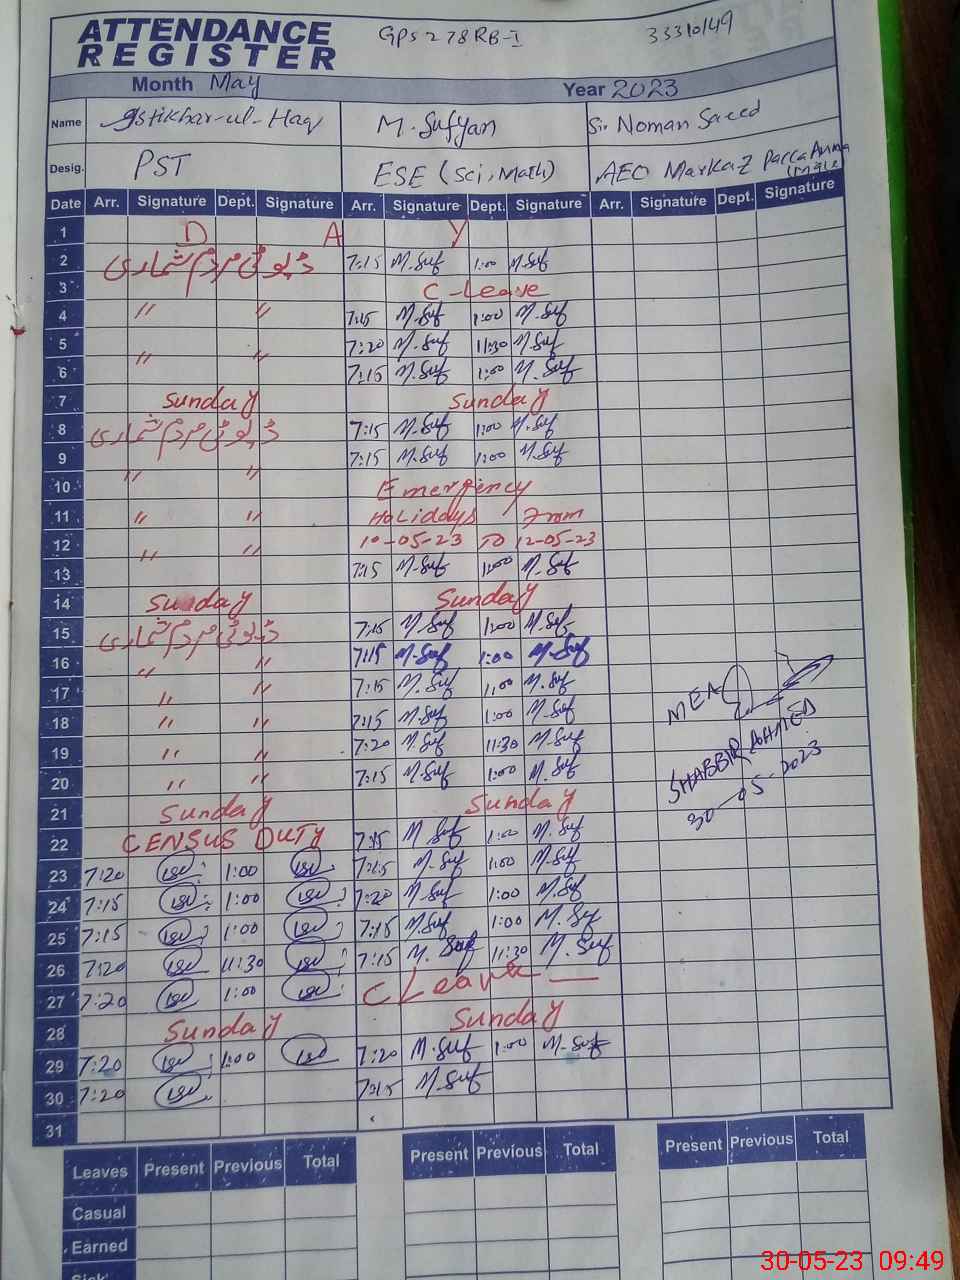 ATTENDANCE REGISTER GPS 278 RB-I 33310149
Month May Year 2023
Name Istikhar-ul-Haq M. Sufyan Sir Noman Saeed
Desig. PST ESE (Sci, Math) AEO Markaz Pacca Anna (Male
Date Arr. Signature Dept. Signature Arr. Signature Dept. Signature Arr. Signature Dept. Signature
1 D A Y
2 ڈیوٹی مردم شماری 7:15 M.Suf 1:00 M.Suf
3 C-Leave
4 " " 7:15 M.Suf 1:00 M.Suf
5 7:20 M.Suf 11:30 M.Suf
6 " " 7:15 M.Suf 1:00 M.Suf
7 Sunday Sunday
8 ڈیوٹی مردم شماری 7:15 M.Suf 1:00 M.Suf
9 7:15 M.Suf 1:00 M.Suf
10 " " Emergency
11 " " Holidays From
12 " " 10-05-23 To 12-05-23
13 7:15 M.Suf 1:00 M.Suf
14 Sunday Sunday
15 ڈیوٹی مردم شماری 7:15 M.Suf 1:00 M.Suf
16 " " 7:15 M.Suf 1:00 M.Suf
17 " " 7:15 M.Suf 1:00 M.Suf
18 " " 7:15 M.Suf 1:00 M.Suf
19 " " 7:20 M.Suf 11:30 M.Suf
20 " " 7:15 M.Suf 1:00 M.Suf
21 Sunday Sunday
22 CENSUS DUTY 7:15 M.Suf 1:00 M.Suf
23 7:20 1:00 7:15 M.Suf 1:00 M.Suf
24 7:15 1:00 7:20 M.Suf 1:00 M.Suf
25 7:15 1:00 7:15 M.Suf 1:00 M.Suf
26 7:20 11:30 7:15 M.Suf 11:30 M.Suf
27 7:20 1:00 C Leave
28 Sunday Sunday
29 7:20 1:00 7:20 M.Suf 1:00 M.Suf
30 7:20 7:15 M.Suf
31
MEA
SHABBIR AHMED
30-05-2023
Leaves Present Previous Total Present Previous Total Present Previous Total
Casual
Earned
Sick
30-05-23 09:49